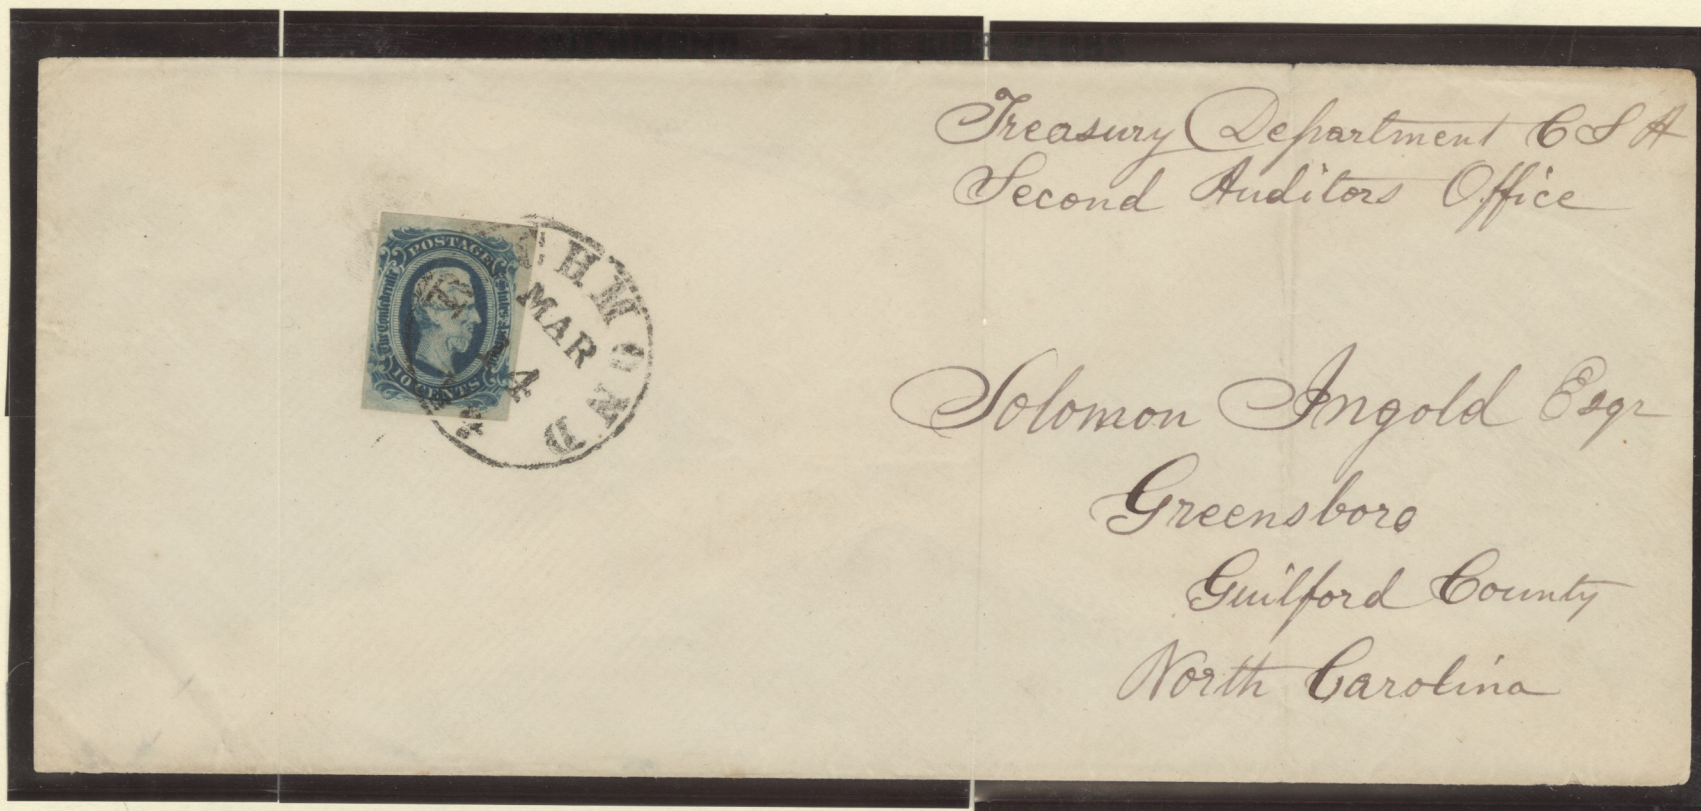 Treasury Department C S A
Second Auditors Office
POSTAGE
The Confederate States
10 CENTS
MAR
14
Solomon Ingold Esqr
Greensboro
Guilford County
North Carolina